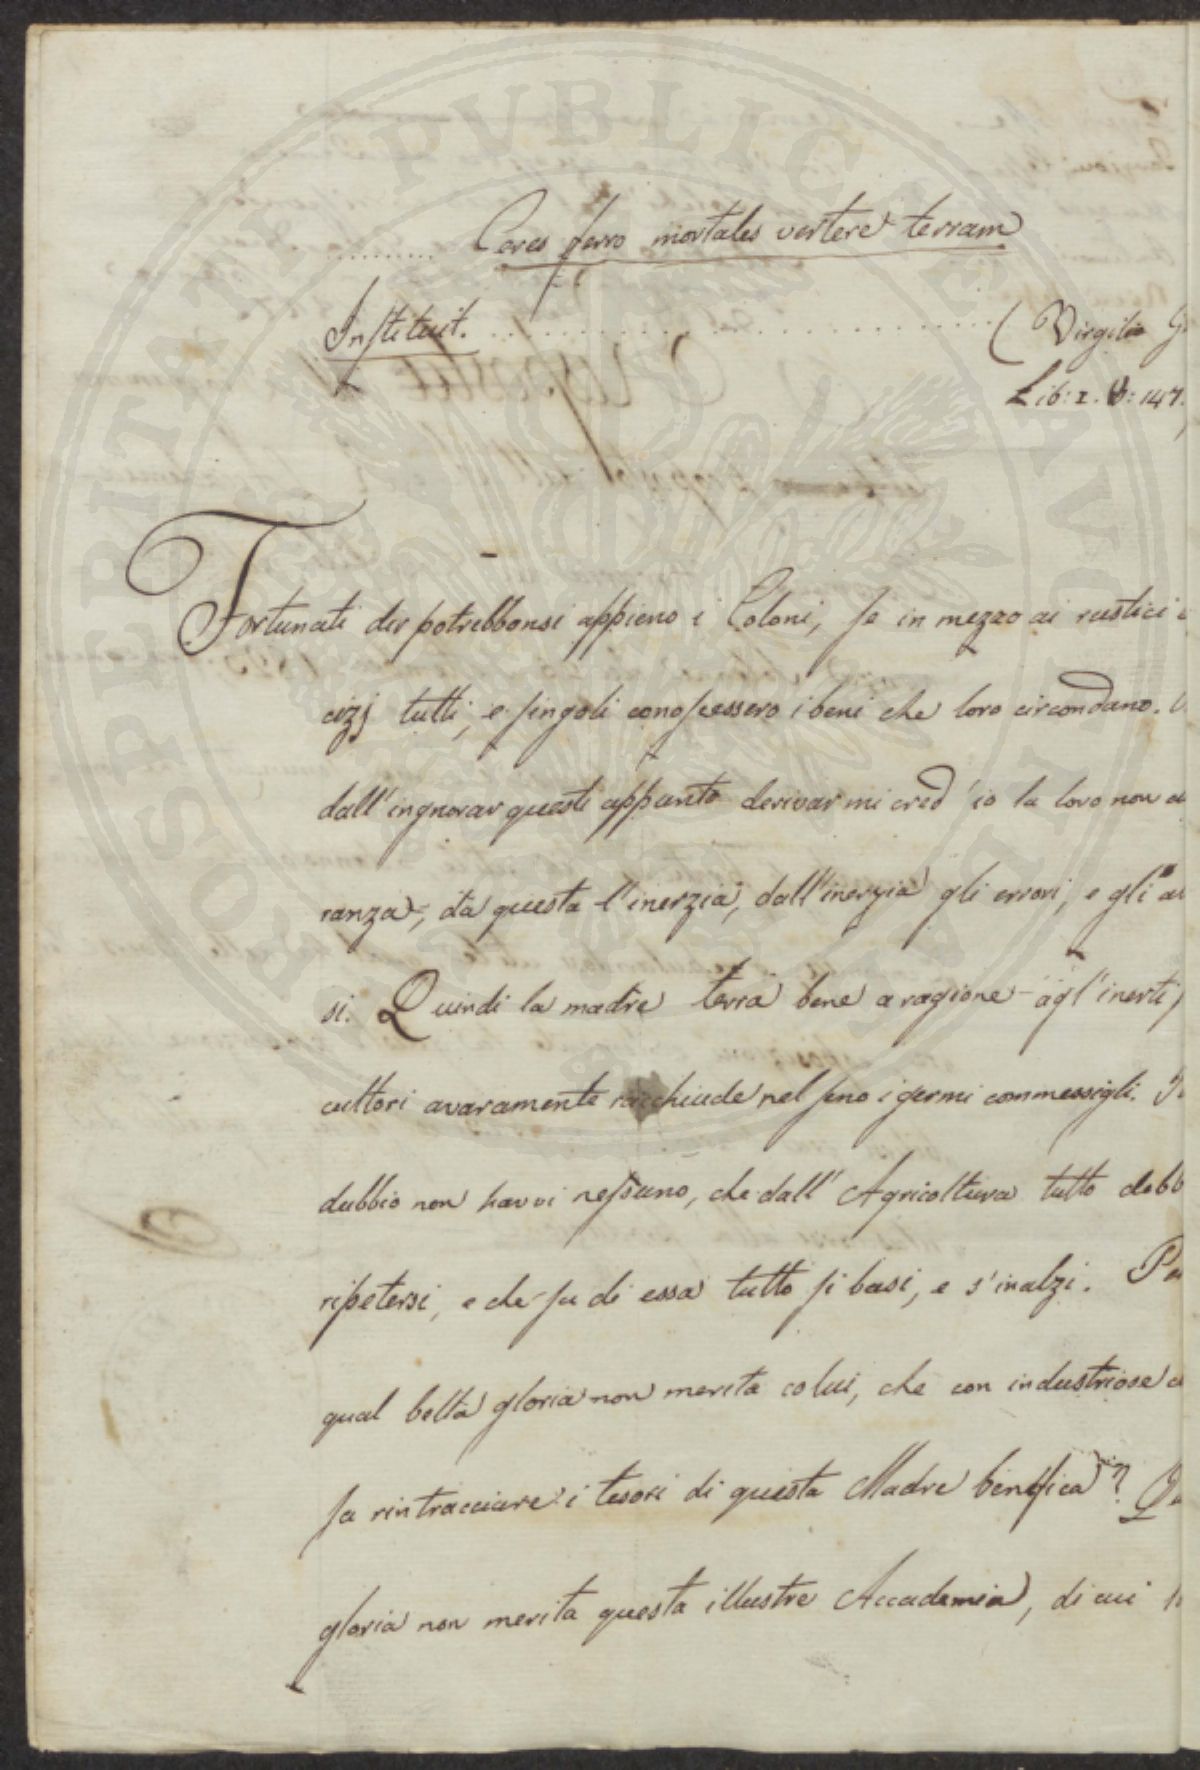 ......... Ceres ferro mortales vertere terram
Instituit. ........................... ( Virgilio G
Lib: I. V: 147.
Fortunati dir potrebbonsi appieno i Coloni, se in mezzo ai rustici
cizj tutti, e singoli conoscessero i beni che loro circondano.
dall'ingnorar questi appunto derivar mi cred'io la loro non
ranza, da questa l'inerzia, dall'inerzia gli errori, e gli
si. Quindi la madre terra bene a ragione agl'inerti
cultori avaramente racchiude nel seno i germi commessigli.
dubbio non havvi nessuno, che dall'Agricoltura tutto debb
ripetersi, e che su di essa tutto si basi, e s'inalzi.
qual bella gloria non merita colui, che con industriose
sa rintracciare i tesori di questa Madre benefica?
gloria non merita questa illustre Accademia, di cui
PROSPERITATI PVBLICAE AVGENDAE